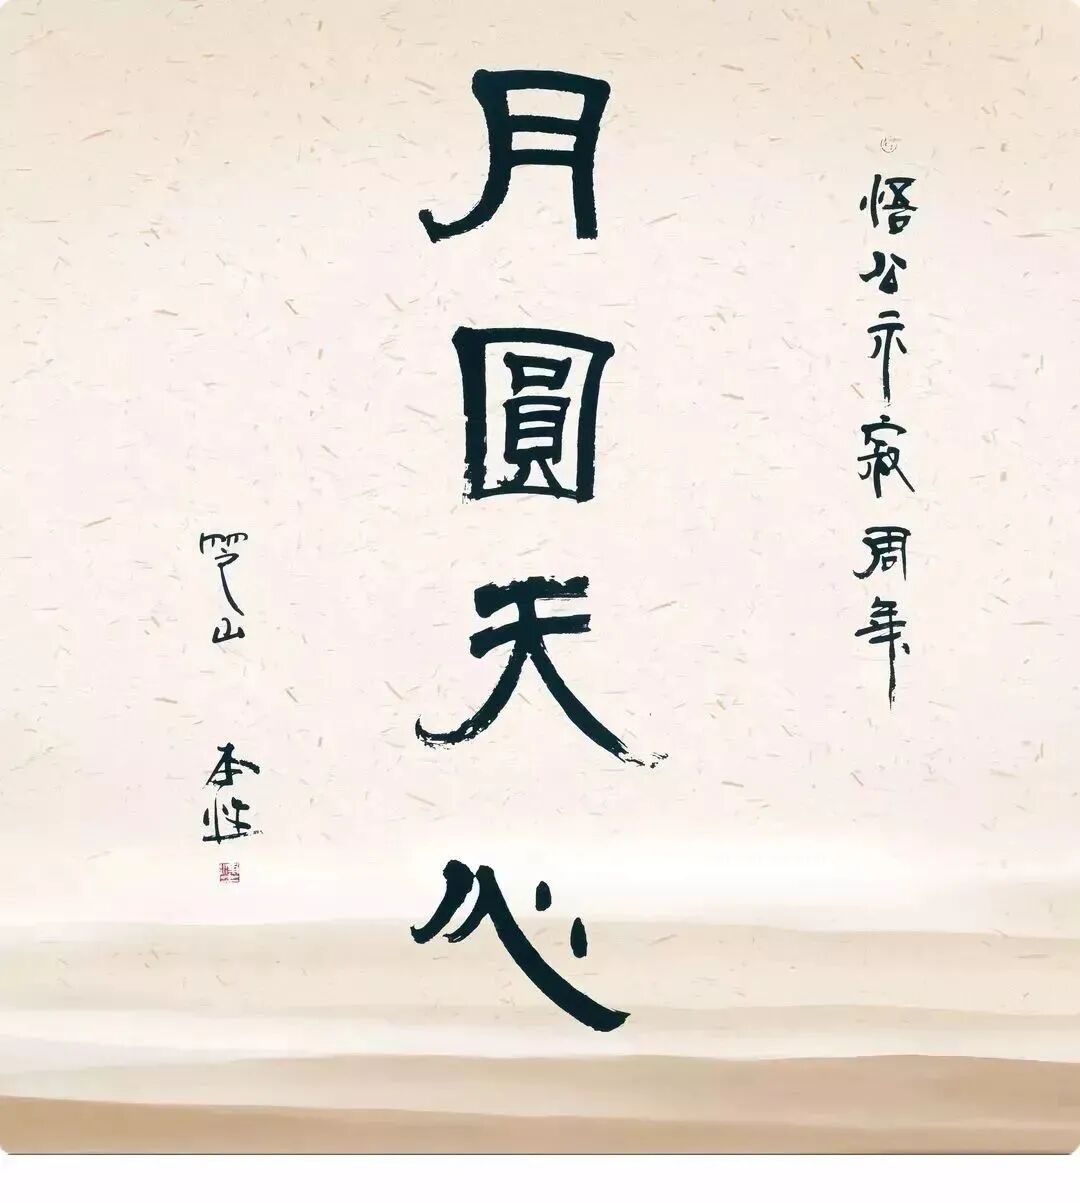 悟公示寂周年
月圓天心
山
本性